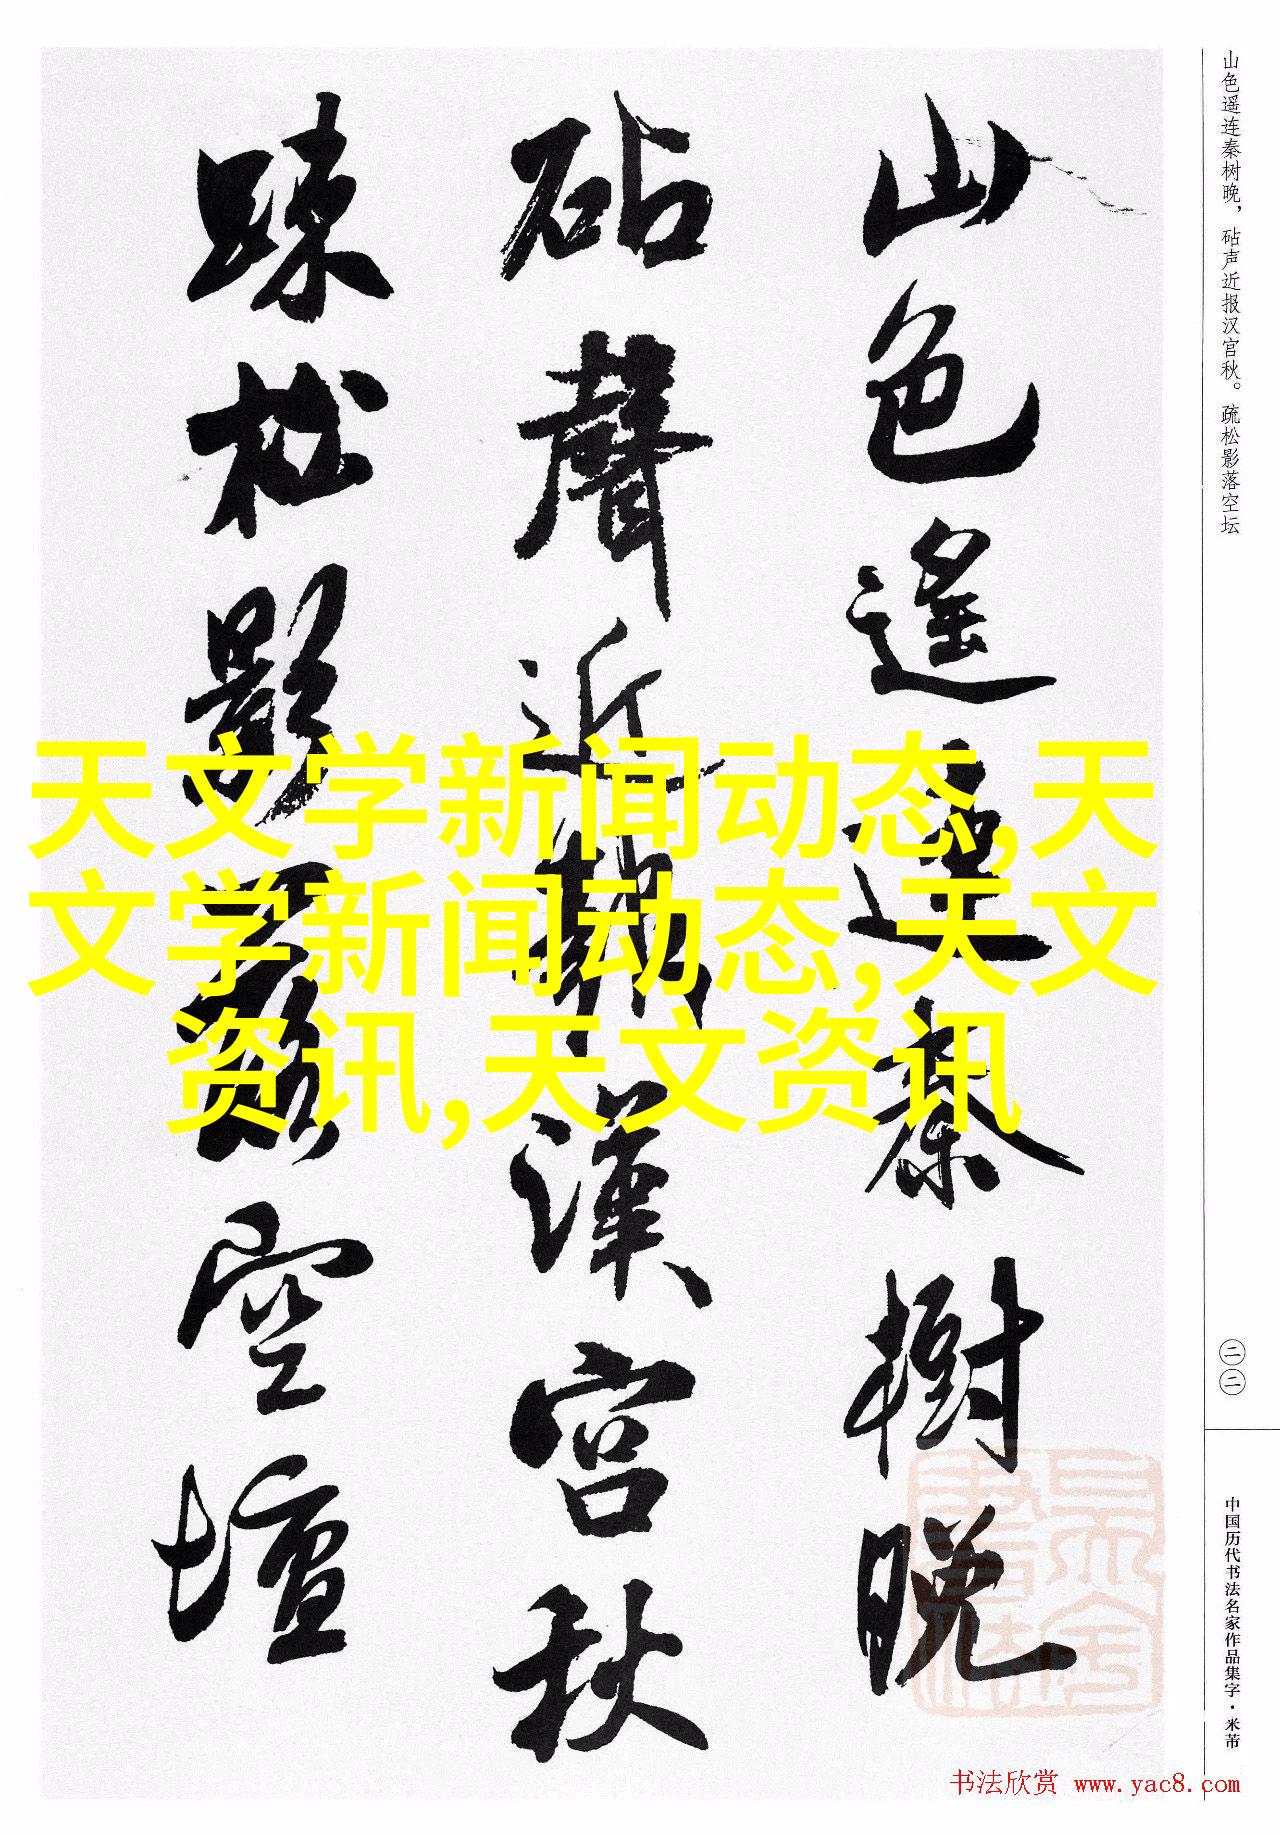 山色遥连秦树晚，砧声近报汉宫秋。疏松影落空坛
山色遙連秦樹晚
砧聲近報漢宮秋
踈松影落空壇
天文学新闻动态,天
文学新闻动态,天文
资讯,天文资讯
二二
中国历代书法名家作品集字·米芾
书法欣赏 www.yac8.com